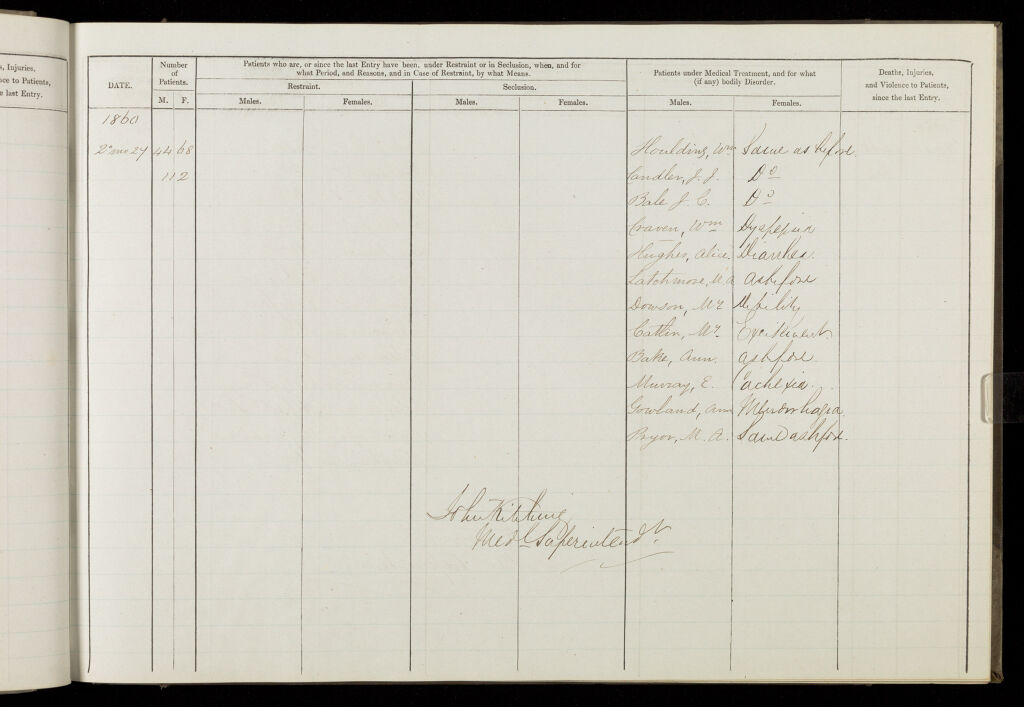 s, Injuries,
nce to Patients,
e last Entry.
DATE.
Number
of
Patients.
M. F.
Patients who are, or since the last Entry have been, under Restraint or in Seclusion, when, and for
what Period, and Reasons, and in Case of Restraint, by what Means.
Restraint.
Seclusion.
Males. Females. Males. Females.
Patients under Medical Treatment, and for what
(if any) bodily Disorder.
Males. Females.
Deaths, Injuries,
and Violence to Patients,
since the last Entry.
1860
2º mo 27 44 68 Houlding, Wm Same as before.
112 Candler, J. J. Dº
Bale J. C. Dº
Craven, Wm Dyspepsia
Hughes, Alice. Diarrhea.
Latchmore, M A as before
Dowson, My Debility
Catlin, My. Excitement.
Bake, Ann. as before
Murray, E. Cachexia.
Gowland, Ann Menorrhagia.
Pryor, M. A. Same as before.
John Kitching
Medl Superintendt.